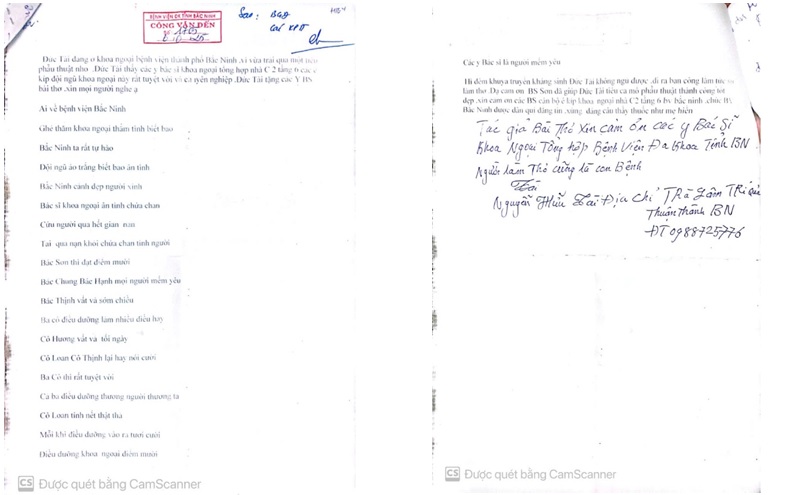 BỆNH VIỆN ĐK TỈNH BẮC NINH
CÔNG VĂN ĐẾN
Sao: BGĐ
Đức Tài đang ở khoa ngoại bệnh viện thành phố Bắc Ninh .vì vừa trải qua một
phẫu thuật nhỏ .Đức Tài thấy các y bác sĩ khoa ngoại tổng hợp nhà C 2 tầng 6 các ê
kíp đội ngũ khoa ngoại này rất tuyệt vời .Đức Tài tặng các Y BS
bài thơ .xin mọi người nghe ạ
Ai về bệnh viện Bắc Ninh
Ghé thăm khoa ngoại thắm tình biết bao
Bắc Ninh ta rất tự hào
Đội ngũ áo trắng biết bao ân tình
Bắc Ninh cảnh đẹp người xinh
Bác sĩ khoa ngoại ân tình chứa chan
Cứu người qua hết gian nan
Tai qua nạn khỏi chứa chan tình người
Bác Sơn thì đạt điểm mười
Bác Chung Bác Hạnh mọi người mềm yêu
Bác Thịnh vất vả sớm chiều
Ba cô điều dưỡng làm nhiều điều hay
Cô Hương vất vả tối ngày
Cô Loan Cô Thịnh lại hay nói cười
Ba Cô thì rất tuyệt vời
Cả ba điều dưỡng thương người thương ta
Cô Loan tính nết thật thà
Mỗi khi điều dưỡng vào ra tươi cười
Điều dưỡng khoa ngoại điểm mười
CS Được quét bằng CamScanner
Các y Bác sĩ là người mềm yêu
Hi đêm khuya truyền kháng sinh Đức Tài không ngủ được .đi ra ban công làm
làm thơ .Dạ cảm ơn BS Sơn đã giúp Đức Tài ca mổ phẫu thuật thành công tốt
đẹp .xin cảm ơn các BS cán bộ ê kíp khoa ngoại nhà C2 tầng 6 bv bắc ninh .chúc BV
Bắc Ninh được dân quí đáng tin .xứng đáng câu thầy thuốc như mẹ hiền
Tác giả Bài Thơ Xin cảm ơn các y Bác Sĩ
Khoa Ngoại Tổng hợp Bệnh Viện Đa khoa Tỉnh BN
Người làm Thơ cũng là con Bệnh
Tài
Nguyễn Hữu Tài Địa Chỉ Trà Lâm Trí Quả
Thuận Thành BN
ĐT 0988725776
CS Được quét bằng CamScanner